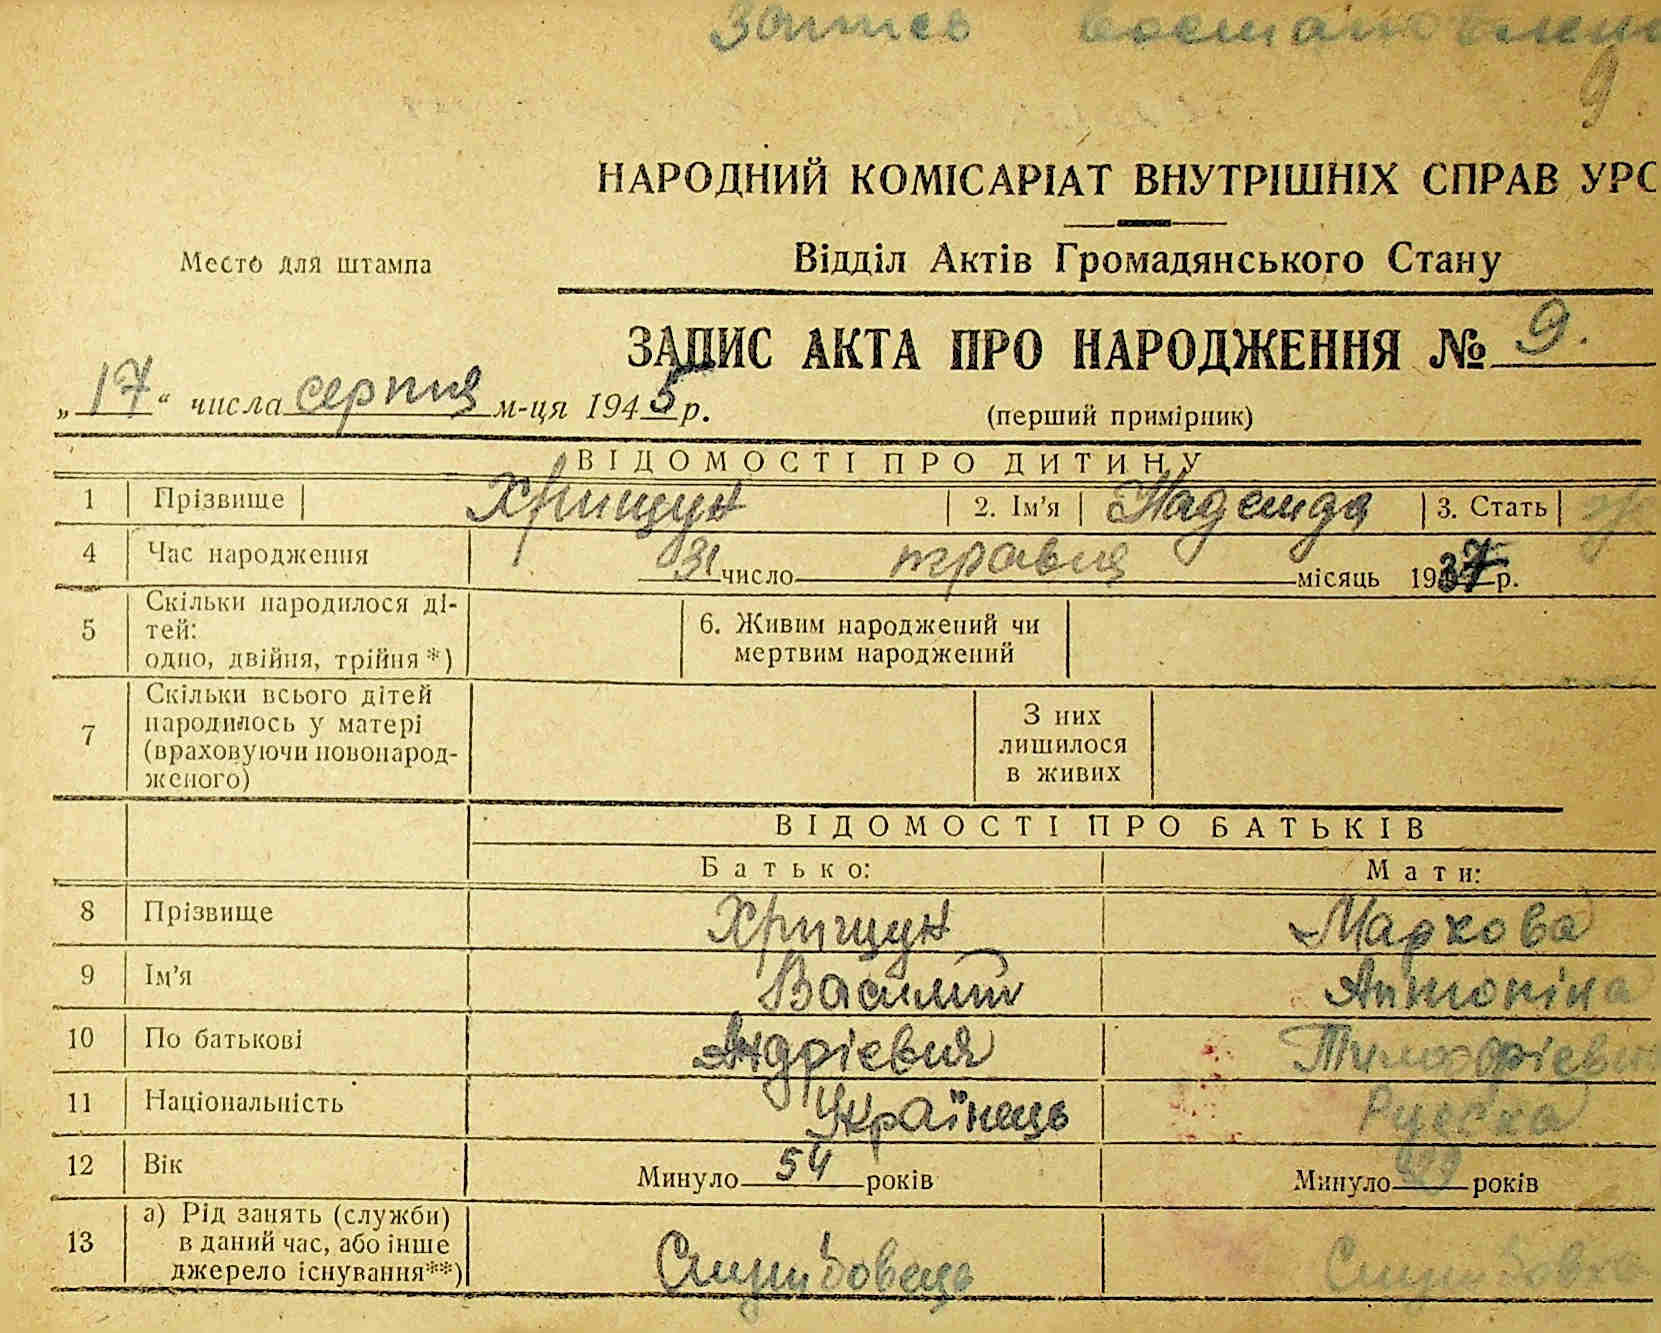 Запись восстановлена
9
НАРОДНИЙ КОМІСАРІАТ ВНУТРІШНІХ СПРАВ УРС
Место для штампа
Відділ Актів Громадянського Стану
ЗАПИС АКТА ПРО НАРОДЖЕННЯ № 9.
„17“ числа серпня м-ця 1945 р.
(перший примірник)
ВІДОМОСТІ ПРО ДИТИНУ
1 Прізвище Хрищун 2. Ім'я Надежда 3. Стать ж
4 Час народження 31 число травня місяць 1937 р.
5 Скільки народилося ді-
тей:
одно, двійня, трійня *)
6. Живим народжений чи
мертвим народжений
7 Скільки всього дітей
народилось у матері
(враховуючи новонарод-
женого)
З них
лишилося
в живих
ВІДОМОСТІ ПРО БАТЬКІВ
Батько: Мати:
8 Прізвище Хрищун Маркова
9 Ім'я Василій Антоніна
10 По батькові Андрієвич Тимофієвн
11 Національність Українець Руська
12 Вік Минуло 54 років Минуло років
13 а) Рід занять (служби)
в даний час, або інше
джерело існування**)
Службовець Службовка